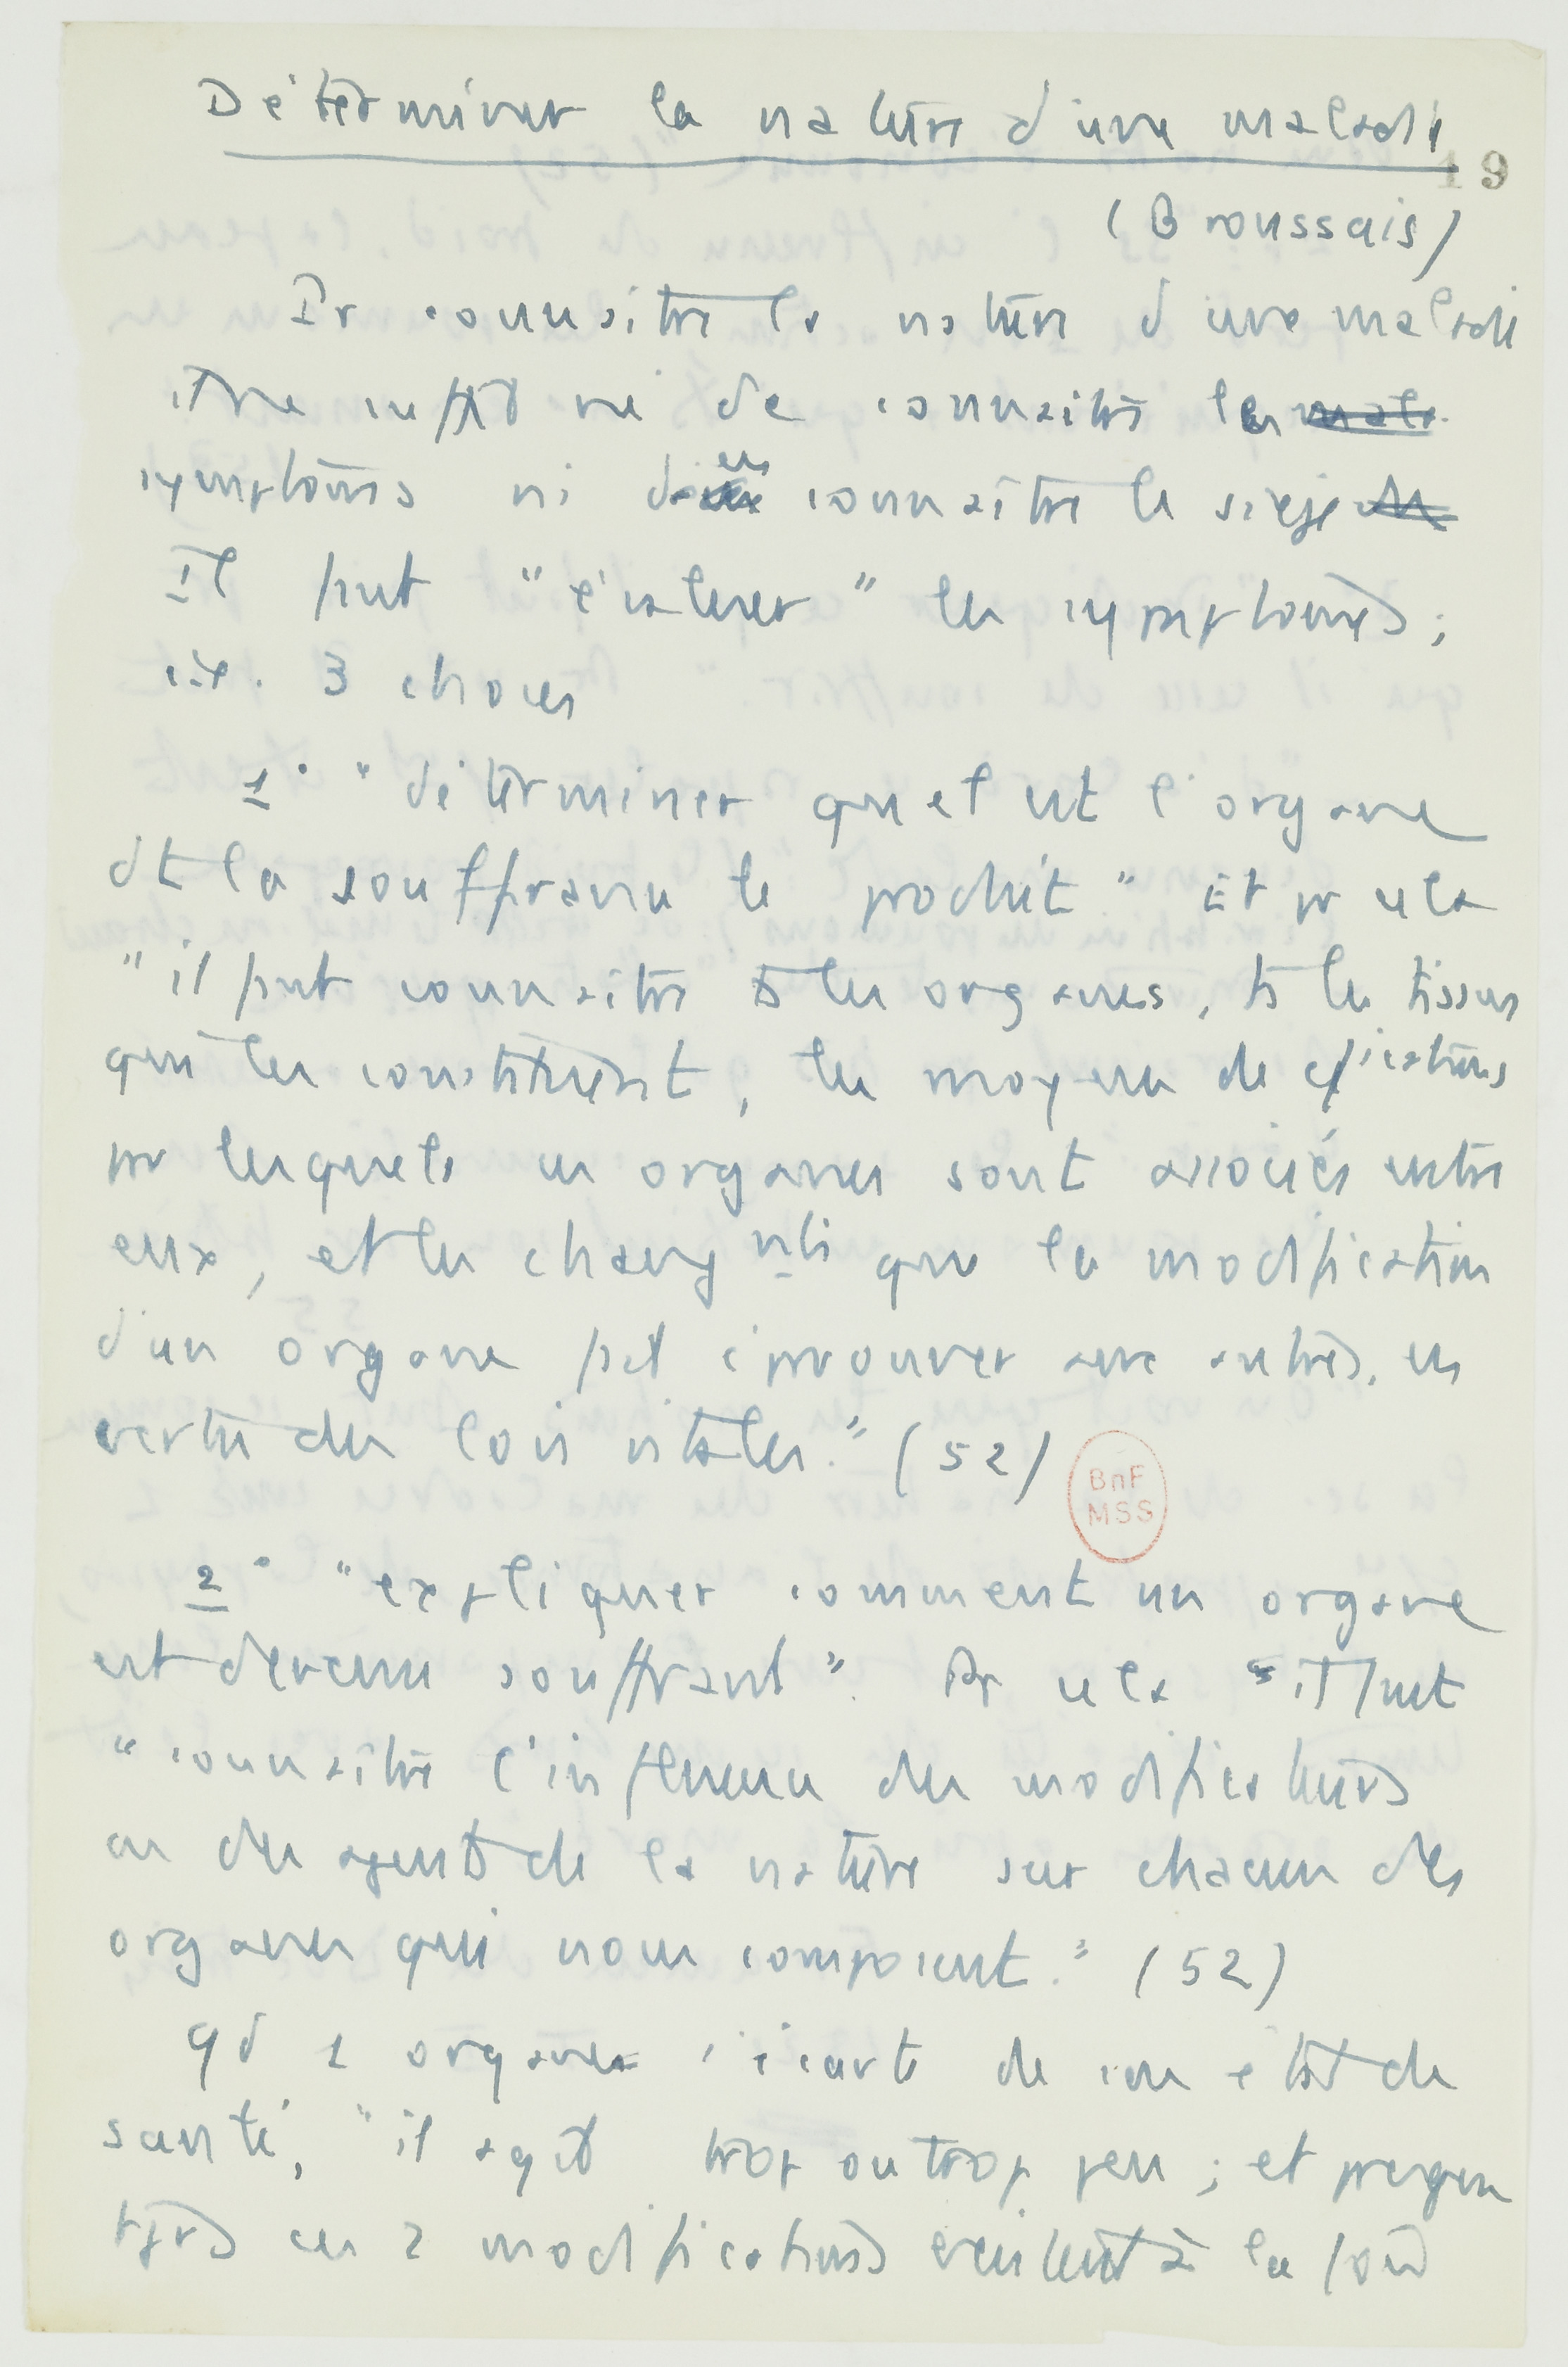 Déterminer la nature d'une maladie
19
(Broussais)
Pr connaître la nature d'une maladie
il ne suffit ni de connaître les
symptômes ni d'en connaître le siège
Il faut " " les symptômes ;
i.e. 3 choses
1° "déterminer quel est l'organe
dt la souffrance le produit" Et pr cela
"il faut connaître ts les organes, ts les tissus
qui les constituent, les moyens de
pr lesquels ces organes sont associés entre
eux, et les changmts que la modification
d'un organe fait éprouver aux autres, en
vertu des lois vitales." (52)
BnF
MSS
2° "expliquer comment un organe
est devenu souffrant". Pr cela il faut
"connaître l'influence des modificateurs
ou des agents de la nature sur chacun des
organes qui nous composent." (52)
qd 1 organe s'écarte de son état de
santé, "il agit trop ou trop peu ; et presque
tjrs ces 2 modifications existent à la fois